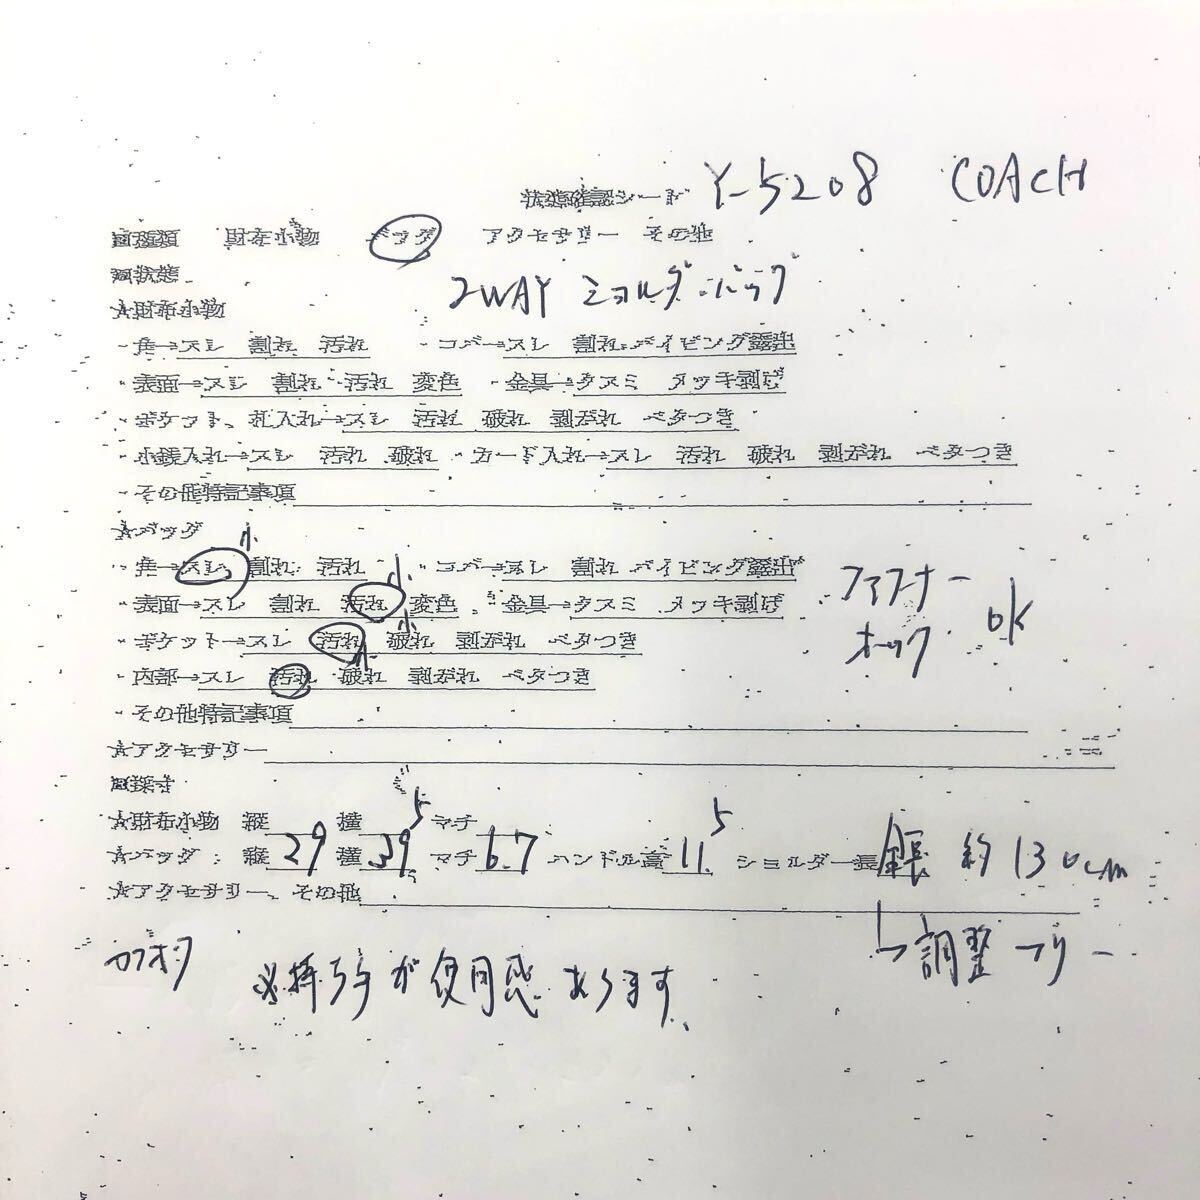 状態確認シート Y-5208 COACH
種類 財布小物 バッグ アクセサリー その他
状態
2WAY ショルダーバッグ
☆財布小物
・角→スレ 割れ 汚れ ・コバ→スレ 割れ パイピング露出
・表面→スレ 割れ 汚れ 変色 ・金具→クスミ メッキ剥げ
・ポケット、札入れ→スレ 汚れ 破れ 剥がれ ベタつき
・小銭入れ→スレ 汚れ 破れ ・カード入れ→スレ 汚れ 破れ 剥がれ ベタつき
・その他特記事項
☆バッグ 小
・角→スレ 割れ 汚れ 小 ・コバ→スレ 割れ パイピング露出
・表面→スレ 割れ 汚れ 変色 ・金具→クスミ メッキ剥げ ファスナー
・ポケット→スレ 汚れ 破れ 剥がれ ベタつき ホック OK
・内部→スレ 汚れ 破れ 剥がれ ベタつき
・その他特記事項
☆アクセサリー
採寸
☆財布小物 縦 横 マチ
☆バッグ:縦 29 横 39.5 マチ 6.7 ハンドル高 11.5 ショルダー長 全長 約130cm
☆アクセサリー、その他
↳調整フリー
※持ち手が使用感あります、